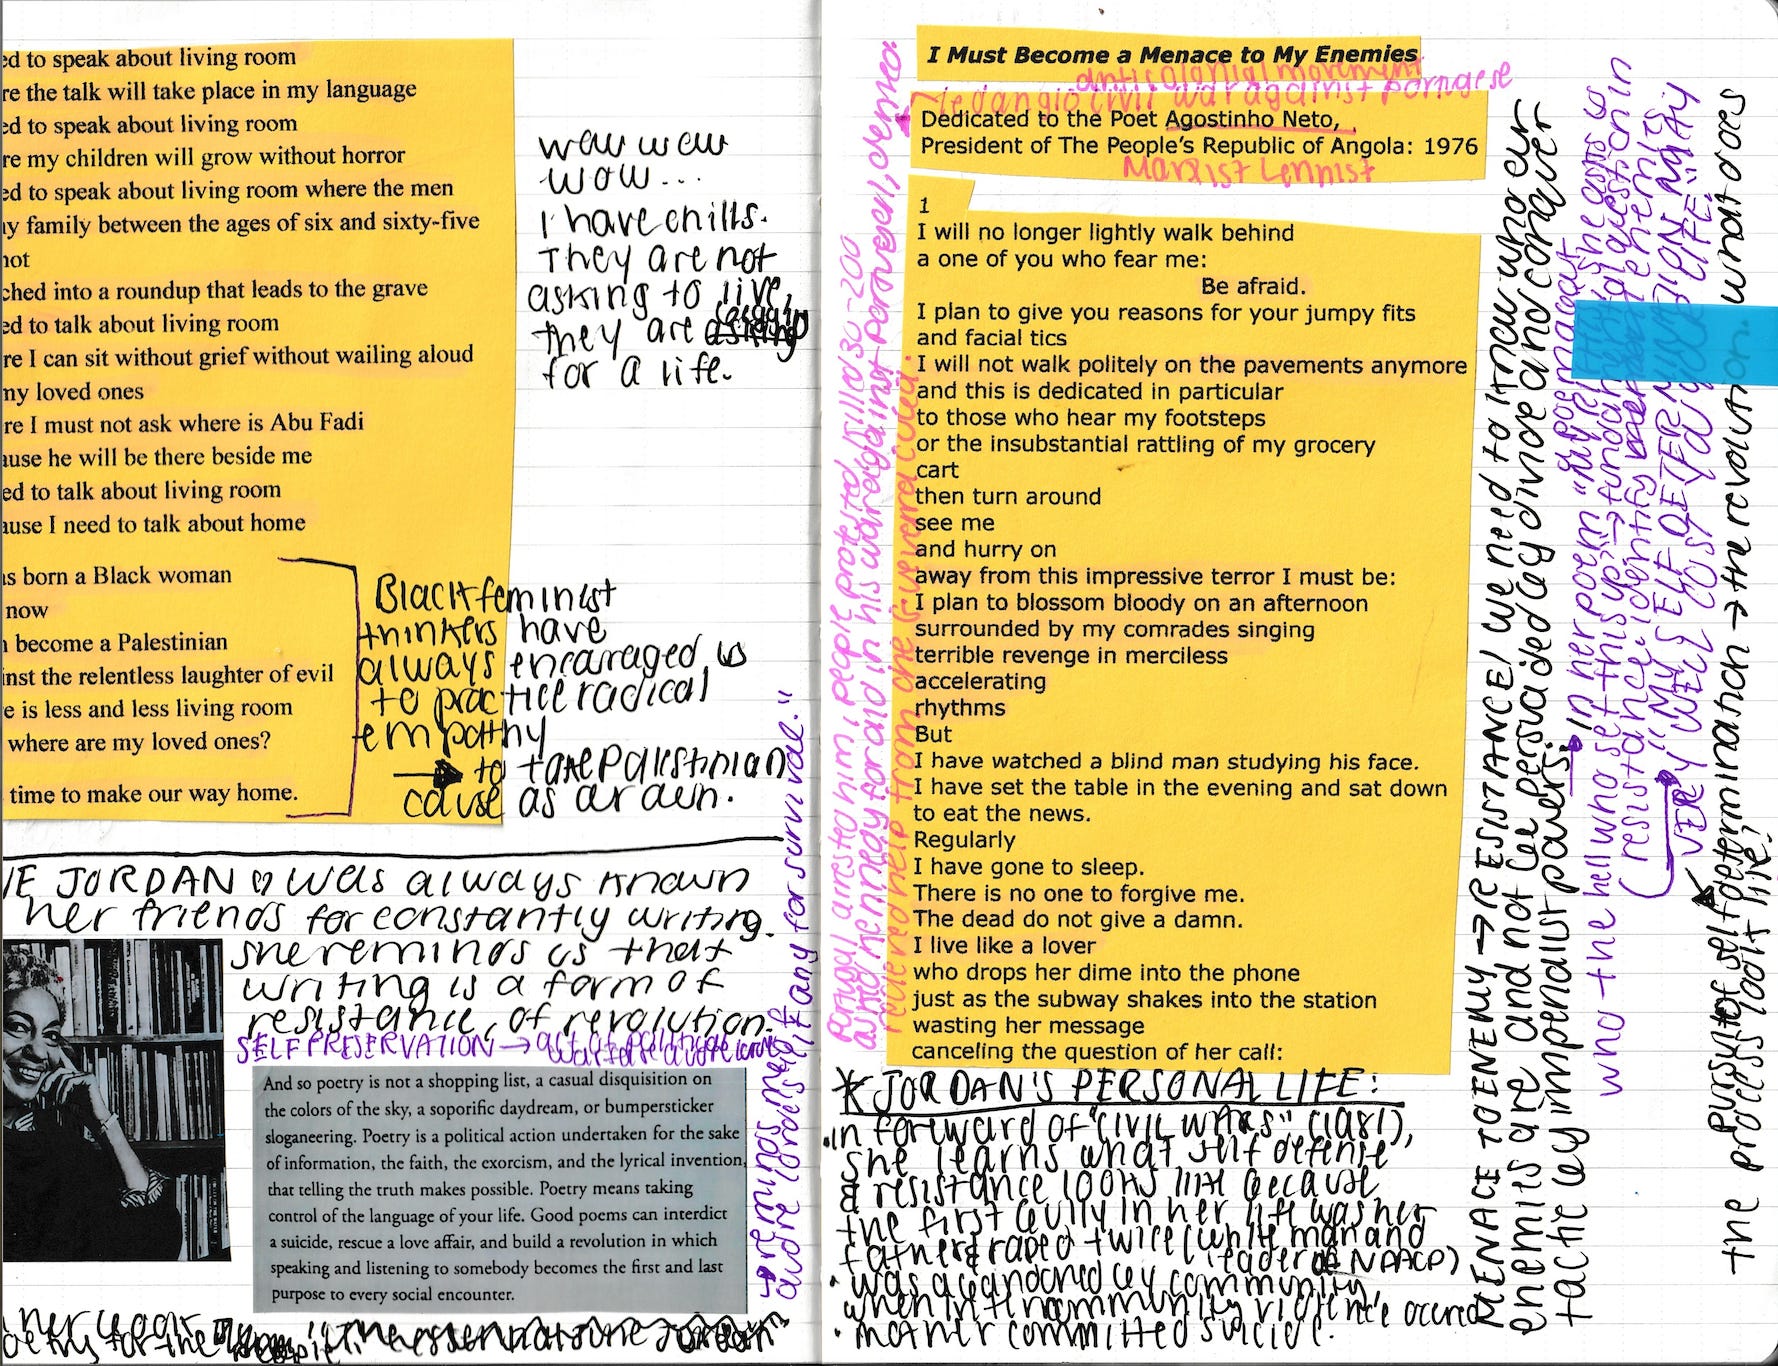 ed to speak about living room
re the talk will take place in my language
ed to speak about living room
re my children will grow without horror
ed to speak about living room where the men
y family between the ages of six and sixty-five
not
ched into a roundup that leads to the grave
ed to talk about living room
re I can sit without grief without wailing aloud
my loved ones
re I must not ask where is Abu Fadi
ause he will be there beside me
ed to talk about living room
ause I need to talk about home
as born a Black woman
now
become a Palestinian
inst the relentless laughter of evil
e is less and less living room
where are my loved ones?
time to make our way home.
wow wow
wow...
I have chills.
They are not
asking to live,
they are
for a life.
Black feminist
thinkers have
always encouraged us
to practice radical
empathy
→ to take Palestinian
cause as our own.
JORDAN ♡ was always known
her friends for constantly writing.
she reminds us that
writing is a form of
resistance, of revolution.
SELF PRESERVATION → act of political
warfare audre lorde
And so poetry is not a shopping list, a casual disquisition on
the colors of the sky, a soporific daydream, or bumpersticker
sloganeering. Poetry is a political action undertaken for the sake
of information, the faith, the exorcism, and the lyrical invention,
that telling the truth makes possible. Poetry means taking
control of the language of your life. Good poems can interdict
a suicide, rescue a love affair, and build a revolution in which
speaking and listening to somebody becomes the first and last
purpose to every social encounter.
→ reminds me of
audre lorde's "if any for survival."
I Must Become a Menace to My Enemies
anticolonial movement
civil war against portugese
Dedicated to the Poet Agostinho Neto,
President of The People's Republic of Angola: 1976
Marxist Lennist
1
I will no longer lightly walk behind
a one of you who fear me:
Be afraid.
I plan to give you reasons for your jumpy fits
and facial tics
I will not walk politely on the pavements anymore
and this is dedicated in particular
to those who hear my footsteps
or the insubstantial rattling of my grocery
cart
then turn around
see me
and hurry on
away from this impressive terror I must be:
I plan to blossom bloody on an afternoon
surrounded by my comrades singing
terrible revenge in merciless
accelerating
rhythms
But
I have watched a blind man studying his face.
I have set the table in the evening and sat down
to eat the news.
Regularly
I have gone to sleep.
There is no one to forgive me.
The dead do not give a damn.
I live like a lover
who drops her dime into the phone
just as the subway shakes into the station
wasting her message
canceling the question of her call:
Portugal arrested him, people protested, killed 30-200
recieved help from che guevara cuba.
* JORDAN'S PERSONAL LIFE:
• in forward of "civil wars" (1981),
she learns what self defense
& resistance looks like because
the first bully in her life was her
father & raped twice (white man and
leader of NAACP)
• was abandoned by community,
when intracommunity violence occured
• mother committed suicide.
MENACE TO ENEMY → RESISTANCE! we need to know who our
enemies are and not be persuaded by divide and conquer
tactic by imperialist powers.
→ in her poem "my poem about
who the hell who set this up →
resistance, identify enemies
"MY SELF DETERMINATION MAY
VERY WELL COST YOU YOUR LIFE."
pursuit of self determination → the revolution. what does
the process look like?